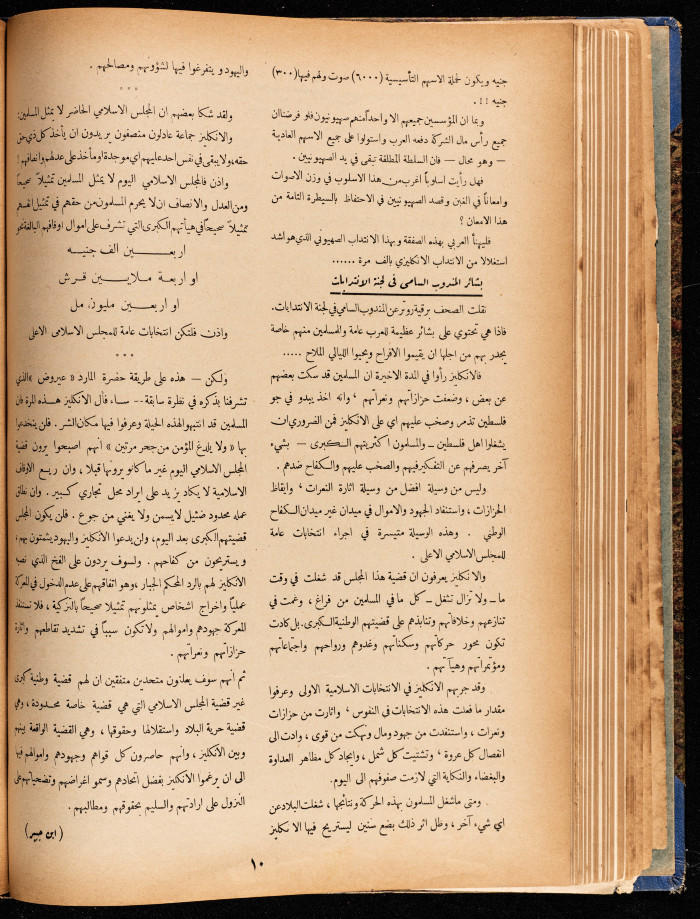 جنيه ويكون لحملة الاسهم التأسيسية (٦٠٠٠) صوت ولهم فيها (٣٠٠)
جنيه !! .
وبما ان المؤسسين جميعهم الا واحداً منهم صهيونيون فلو فرضنا ان
جميع رأس مال الشركة دفعه العرب واستولوا على جميع الاسهم العادية
— وهو محال — فان السلطة المطلقة تبقى في يد الصهيونيين .
فهل رأيت اسلوباً اغرب من هذا الاسلوب في وزن الاصوات
وامعاناً في الغبن وقصد الصهيونيين في الاحتفاظ بالسيطرة التامة من
هذا الامعان ؟
فليهنأ العربي بهذه الصفقة وبهذا الانتداب الصهيوني الذي هو اشد
استغلالا من الانتداب الانكليزي بالف مرة ......
بشائر المندوب السامي في لجنة الانتدابات
نقلت الصحف برقية روتر عن المندوب السامي في لجنة الانتدابات.
فاذا هي تحتوي على بشائر عظيمة للعرب عامة والمسلمين منهم خاصة
يجدر بهم من اجلها ان يقيموا الافراح ويحيوا الليالي الملاح .....
فالانكليز رأوا في المدة الاخيرة ان المسلمين قد سكت بعضهم
عن بعض ، وضعفت حزازاتهم ونعراتهم ، وانه اخذ يبدو في جو
فلسطين تذمر وصخب عليهم اي على الانكليز فمن الضروري ان
يشغلوا اهل فلسطين — والمسلمون اكثريتهم الكبرى — بشيء
آخر يصرفهم عن التفكير فيهم والصخب عليهم والكفاح ضدهم .
وليس من وسيلة افضل من وسيلة اثارة النعرات ، وايقاظ
الحزازات ، واستنفاد الجهود والاموال في ميدان غير ميدان الكفاح
الوطني . وهذه الوسيلة متيسرة في اجراء انتخابات عامة
للمجلس الاسلامي الاعلى .
والانكليز يعرفون ان قضية هذا المجلس قد شغلت في وقت
ما — ولا تزال تشغل — كل ما في المسلمين من فراغ ، وغمت في
تنازعهم وخلافاتهم وتنابذهم على قضيتهم الوطنية الكبرى. بل كادت
تكون محور حركاتهم وسكناتهم وغدوهم ورواحهم واجتماعاتهم
ومؤتمراتهم وهيآتهم .
وقد جربهم الانكليز في الانتخابات الاسلامية الاولى وعرفوا
مقدار ما فعلت هذه الانتخابات في النفوس ، واثارت من حزازات
ونعرات ، واستنفدت من جهود ومال ونهكت من قوى ، وادت الى
انفصال كل عروة ، وتشتيت كل شمل ، وايجاد كل مظاهر العداوة
والبغضاء والنكاية التي لازمت صفوفهم الى اليوم.
ومتى ماشغل المسلمون بهذه الحركة ونتائجها ، شغلت البلاد عن
اي شيء آخر ، وظل اثر ذلك بضع سنين ليستريح فيها الانكليز
واليهود ويتفرغوا فيها لشؤونهم ومصالحهم .
* * *
ولقد شكا بعضهم ان المجلس الاسلامي الحاضر لا يمثل المسلمين
والانكليز جماعة عادلون منصفون يريدون ان يأخذ كل ذي حق
حقه، ولا يبقى في نفس احد عليهم اي موجدة او مأخذ على عدلهم وانصافهم!
واذن فالمجلس الاسلامي اليوم لا يمثل المسلمين تمثيلاً صحيحاً
ومن العدل والانصاف ان لا يحرم المسلمون من حقهم في تمثيل انفسهم
تمثيلاً صحيحاً في هيأتهم الكبرى التي تشرف على اموال اوقافهم البالغة نحو
اربعـــين الف جنيـــه
او اربعة ملايـــين قـرش
او اربعـين مليون مل
واذن فلتكن انتخابات عامة للمجلس الاسلامي الاعلى
* * *
ولكن — هذه على طريقة حضرة المارد « عيروض » الذي
تشرفنا بذكره في نظرة سابقة — ساء فأل الانكليز هذه المرة فان
المسلمين قد انتبهوا لهذه الحيلة وعرفوا فيها مكان الشر . فلن ينخدعوا
بها « ولا يلدغ المؤمن من جحر مرتين » انهم اصبحوا يرون قضية
المجلس الاسلامي اليوم غير ما كانوا يرونها قبلا ، وان ريع الاوقاف
الاسلامية لا يكاد يزيد على ايراد محل تجاري كبير . وان نطاق
عمله محدود ضئيل لا يسمن ولا يغني من جوع . فلن يكون المجلس
قضيتهم الكبرى بعد اليوم، ولن يدعوا الانكليز واليهود يشمتون بهم ،
ويستريحون من كفاحهم . ولسوف يردون على الفخ الذي نصبه
الانكليز لهم بالرد المحكم الجبار ، وهو اتفاقهم على عدم الدخول في المعركة
عملياً واخراج اشخاص يمثلونهم تمثيلا صحيحاً بالتزكية ، فلا تستنفد
المعركة جهودهم واموالهم ولا تكون سبباً في تشديد تقاطعهم واثارة
حزازاتهم ونعراتهم .
ثم انهم سوف يعلنون متحدين متفقين ان لهم قضية وطنية كبرى
غير قضية المجلس الاسلامي التي هي قضية خاصة محدودة ، وهي
قضية حرية البلاد واستقلالها وحقوقها ، وهي القضية الواقعة بينهم
وبين الانكليز ، وانهم حاصرون كل قواهم وجهودهم واموالهم فيها
الى ان يرغموا الانكليز بفضل اتحادهم وسمو اغراضهم وتضحياتهم على
النزول على ارادتهم والتسليم بحقوقهم ومطالبهم .
( ابن جبير )
١٠